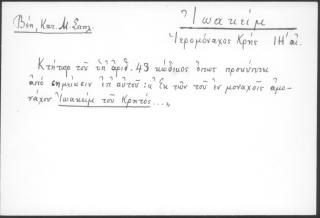 Βέη, Κατ. Μ. Σπηλ.
Ἰωακείμ
Ἱερομόναχος Κρής ΙΗ΄ αἰ.
Κτήτωρ τοῦ ὑπ᾽ ἀριθ. 49 κώδικος ὅπως προκύπτει
ἀπό σημείωσιν ἐπ᾽ αὐτοῦ: "ἐκ τῶν τοῦ ἐν μοναχοῖς ἁμο-
νάχου Ἰωακείμ τοῦ Κρητός..."